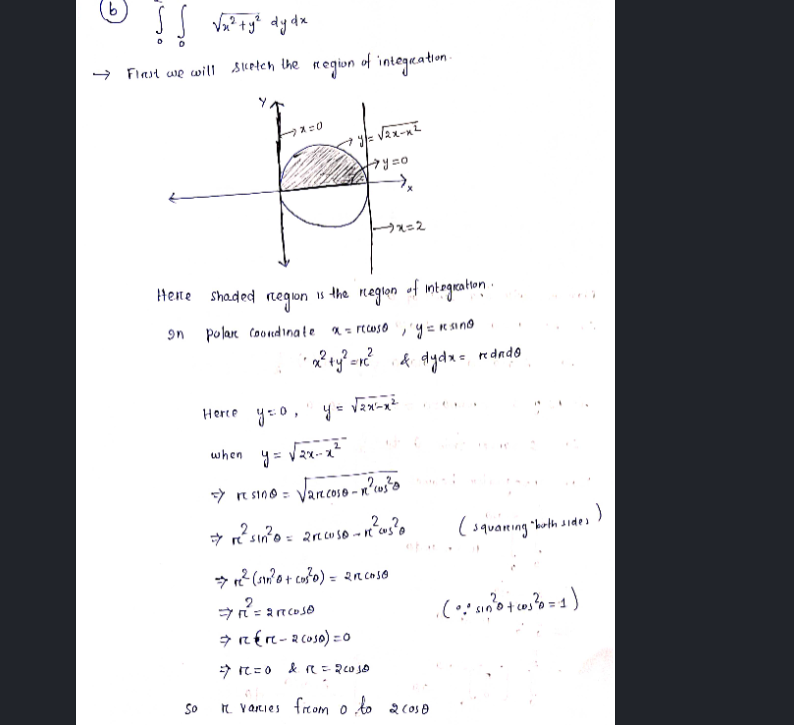 (b) ∫₀ ∫₀ √x²+y² dy dx
→ First we will sketch the region of integration.
Y
→ x=0
→ y = √2x-x²
→ y=0
x
→ x=2
Here shaded region is the region of integration.
In polar coordinate x = rcosθ , y = r sinθ
x²+y²=r² & dydx = rdrdθ
Here y=0, y = √2x-x²
when y = √2x-x²
⇒ r sinθ = √2rcosθ - r²cos²θ
⇒ r² sin²θ = 2r cosθ - r² cos²θ (squaring both sides)
⇒ r² (sin²θ + cos²θ) = 2r cosθ
⇒ r² = 2r cosθ (∵ sin²θ + cos²θ = 1)
⇒ r (r - 2cosθ) = 0
⇒ r=0 & r = 2cosθ
So r varies from 0 to 2cosθ